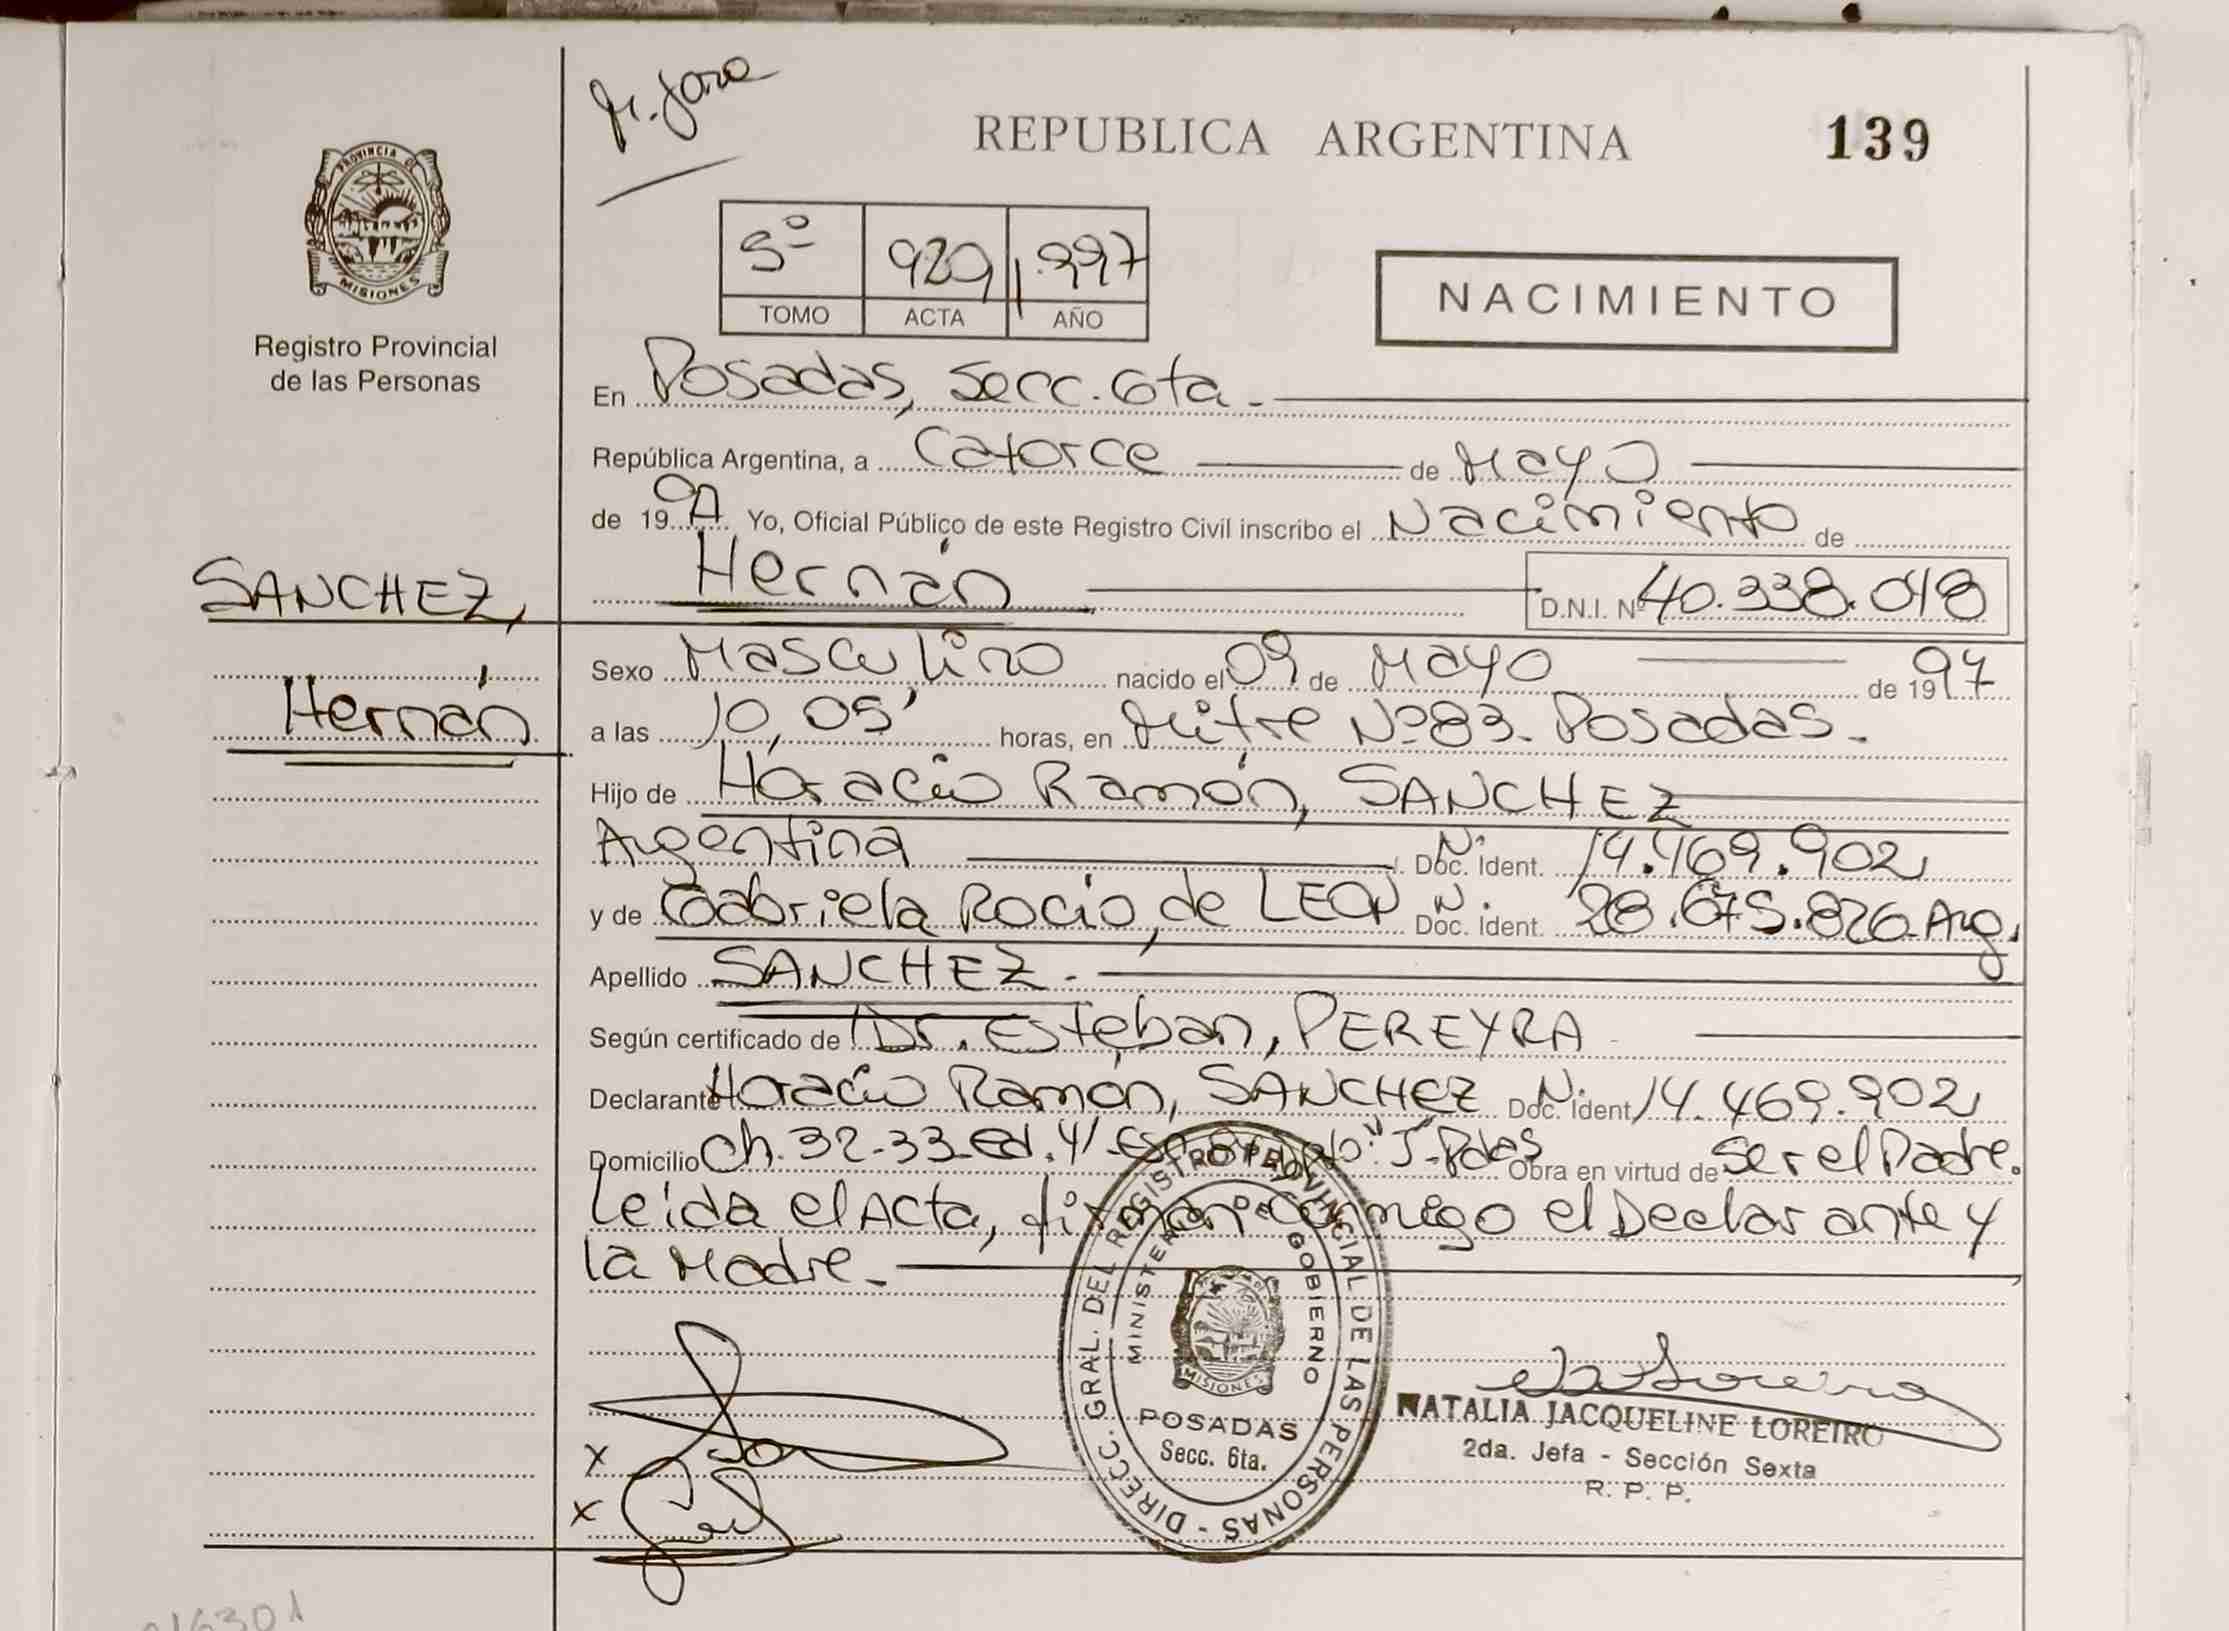 REPUBLICA ARGENTINA
139
PROVINCIA DE
MISIONES
Registro Provincial
de las Personas
5º 929 1.997
TOMO ACTA AÑO
NACIMIENTO
En Posadas, Secc. 6ta.
República Argentina, a Catorce de Mayo
de 1997 Yo, Oficial Público de este Registro Civil inscribo el Nacimiento de
Hernán D.N.I. Nº 40.338.048
SANCHEZ,
Hernán
Sexo Masculino nacido el 09 de Mayo de 1997
a las 10,05' horas, en Mitre Nº 83. Posadas.
Hijo de Horacio Ramón, SANCHEZ
Argentina N. Doc. Ident. 14.469.902
y de Gabriela Rocio, de LEON N. Doc. Ident. 28.675.826 Arg.
Apellido SANCHEZ.
Según certificado de Dr. Esteban, PEREYRA
Declarante Horacio Ramón, SANCHEZ N. Doc. Ident 14.469.902
Domicilio Ch. 32-33 Ed. 41 Obra en virtud de Ser el Padre.
Leida el Acta, firman conmigo el Declarante y
la Madre.
DIRECC. GRAL. DEL REGISTRO PROVINCIAL DE LAS PERSONAS -
MINISTERIO DE GOBIERNO
MISIONES
POSADAS
Secc. 6ta.
NATALIA JACQUELINE LOREIRO
2da. Jefa - Sección Sexta
R. P. P.
x
x